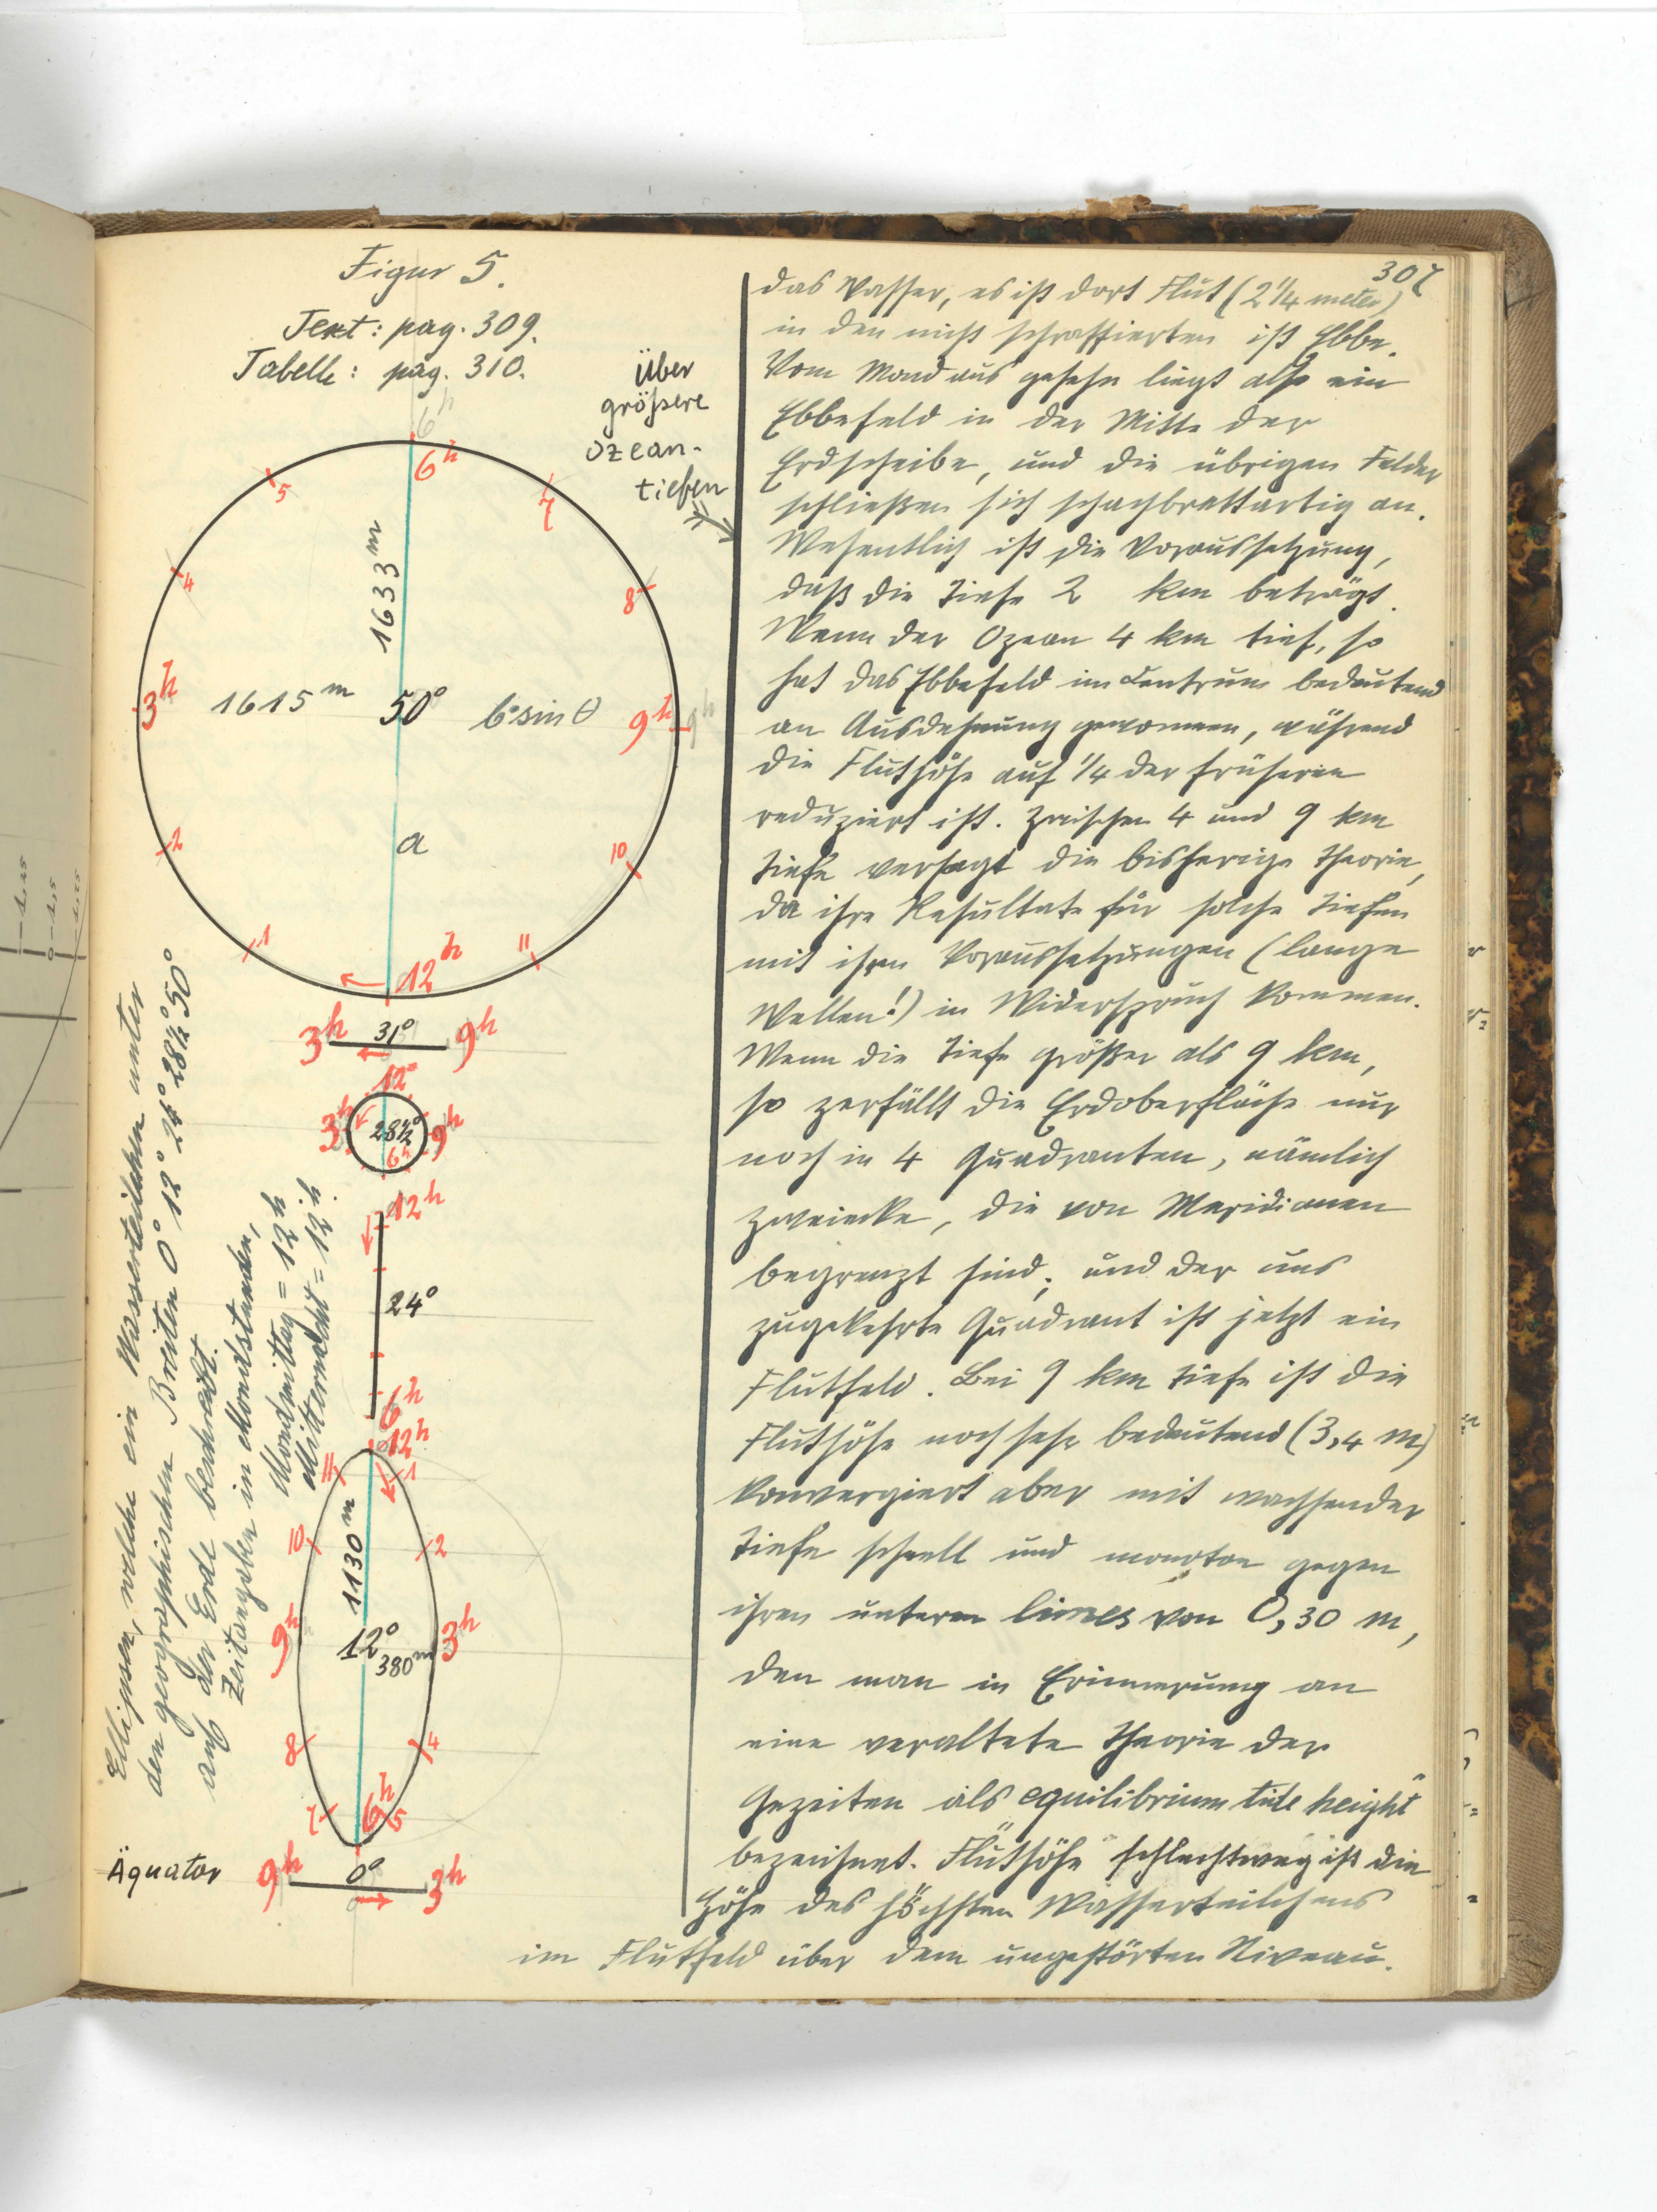 307
Figur 5.
Text: pag. 309.
Tabelle: pag. 310.
Über
größere
Ozean-
tiefen
6h
6h
5
7
4
8
1633 m
3h
1615 m
50°
b·sin θ
9h
9h
2
a
10
1
11
12h
3h
31°
9h
12h
3h
28½°
9h
6h
12h
24°
6h
12h
11
1
10
2
1130 m
9h
12°
3h
380 m
8
4
7
6h
5
Äquator
9h
0°
3h
Ellipsen, welche ein Wasserteilchen unter
den geographischen Breiten 0° 12° 24° 28½° 50°
auf der Erde beschreibt.
Zeitangaben in Mondstunden,
Mondmittag = 12h
Mitternacht = 12h.
das Wasser, es ist dort Flut (2¼ meter)
in den nicht schraffierten ist Ebbe.
Vom Mond aus gesehn liegt also ein
Ebbefeld in der Mitte der
Erdscheibe, und die übrigen Felder
schließen sich schachbrettartig an.
Wesentlich ist die Voraussetzung,
daß die Tiefe 2 km beträgt.
Wenn der Ozean 4 km tief, so
hat das Ebbefeld im Centrum bedeutend
an Ausdehnung gewonnen, während
die Fluthöhe auf ¼ der früheren
reduziert ist. Zwischen 4 und 9 km
Tiefe versagt die bisherige Theorie,
da ihre Resultate für solche Tiefen
mit ihren Voraussetzungen (lange
Wellen!) in Widerspruch kommen.
Wenn die Tiefe größer als 9 km,
so zerfällt die Erdoberfläche nur
noch in 4 Quadranten, nämlich
Zweiecke, die von Meridianen
begrenzt sind, und der uns
zugekehrte Quadrant ist jetzt ein
Flutfeld. Bei 9 km Tiefe ist die
Fluthöhe noch sehr bedeutend (3,4 m)
konvergiert aber mit wachsender
Tiefe schnell und monoton gegen
ihren unteren limes von 0,30 m,
den man in Erinnerung an
eine veraltete Theorie der
Gezeiten als "equilibrium tide height"
bezeichnet. "Fluthöhe" schlechtweg ist die
Höhe des höchsten Wasserteilchens
im Flutfeld über dem ungestörten Niveau.